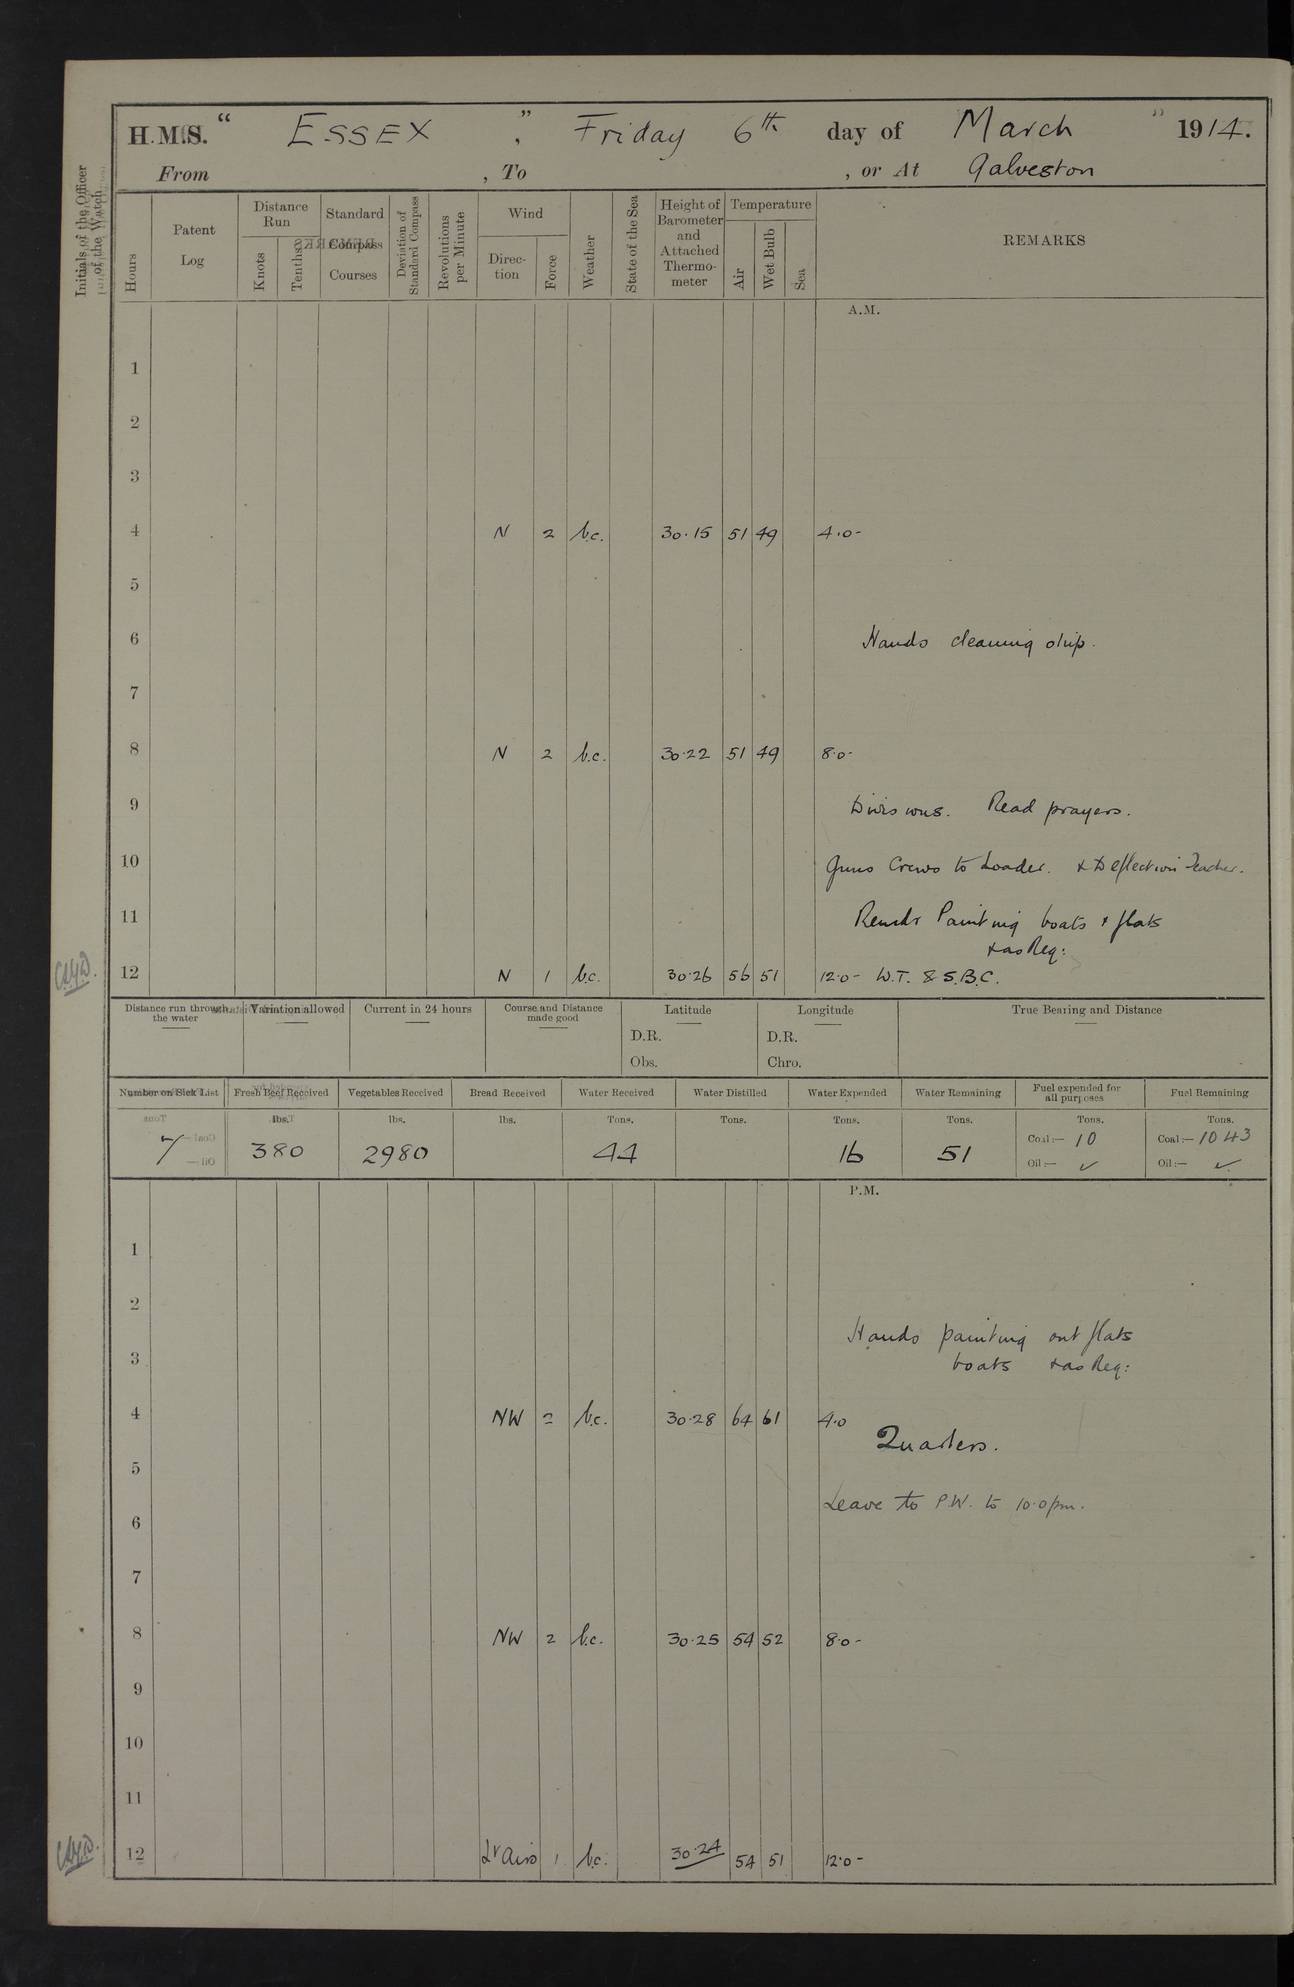 H.M.S. " ESSEX ", Friday 6th day of March 1914.
From , To , or At Galveston
Initials of the Officer of the Watch
Hours
Patent Log
Distance Run
Knots
Tenths
Standard Compass Courses
Deviation of Standard Compass
Revolutions per Minute
Wind
Direction
Force
Weather
State of the Sea
Height of Barometer and Attached Thermometer
Temperature
Air
Wet Bulb
Sea
REMARKS
A.M.
1
2
3
4 N 2 b.c. 30.15 51 49 4.0-
5
6 Hands cleaning ship.
7
8 N 2 b.c. 30.22 51 49 8.0-
9 Divisions. Read prayers.
10 Guns Crews to Loader. & Deflection Teacher.
11 Remdr Painting boats & flats
& as Req:
12 N 1 b.c. 30.26 56 51 12.0- W.T. & S.B.C.
Distance run through the water
Variation allowed
Current in 24 hours
Course and Distance made good
Latitude
D.R.
Obs.
Longitude
D.R.
Chro.
True Bearing and Distance
Number on Sick List Fresh Beef Received Vegetables Received Bread Received Water Received Water Distilled Water Expended Water Remaining Fuel expended for all purposes Fuel Remaining
lbs. lbs. lbs. Tons. Tons. Tons. Tons. Tons. Tons.
7 380 2980 44 16 51 Coal:— 10 Coal:— 1043
Oil:— ✓ Oil:— ✓
P.M.
1
2
Hands painting out flats
3 boats & as Req:
4 NW 2 b.c. 30.28 64 61 4.0
Quarters.
5
Leave to P.W. to 10.0pm.
6
7
8 NW 2 b.c. 30.25 54 52 8.0-
9
10
11
12 Lt airs 1 b.c. 30.24 54 51 12.0-